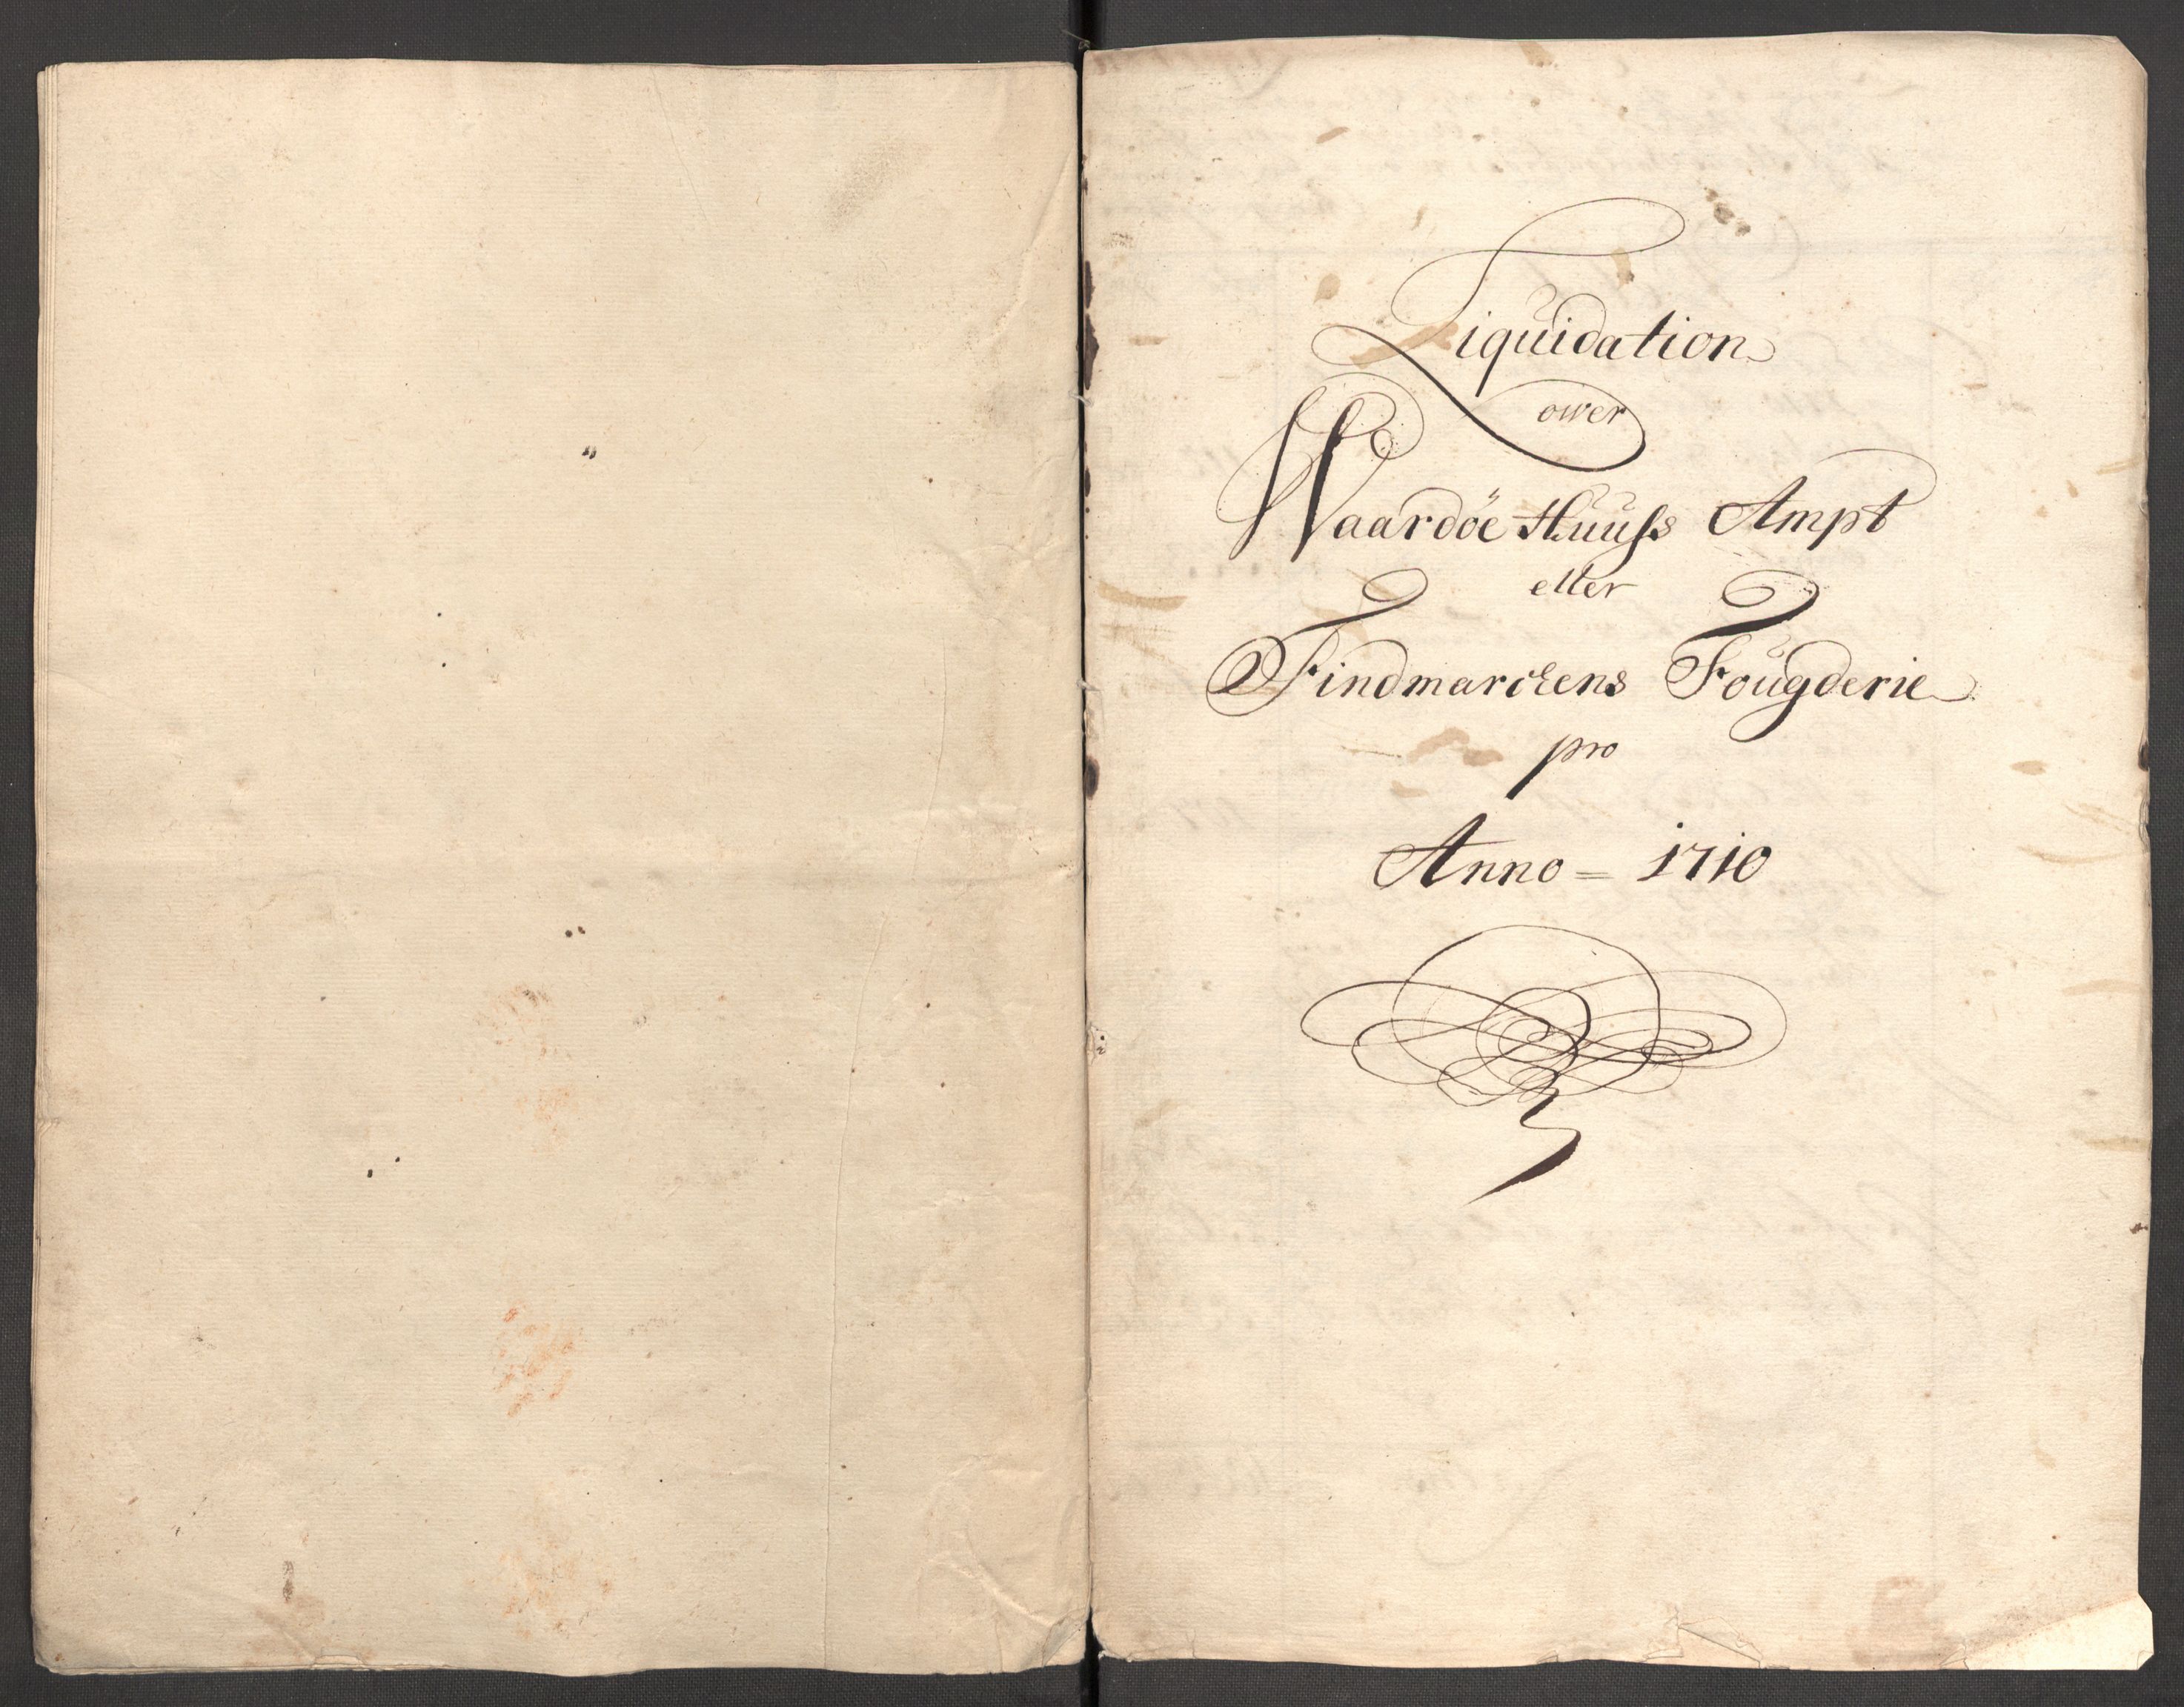 Liquidation
ower
Waardöe Huuss Ampt
eller
Findmarckens Fougderie
pro
Anno = 1710